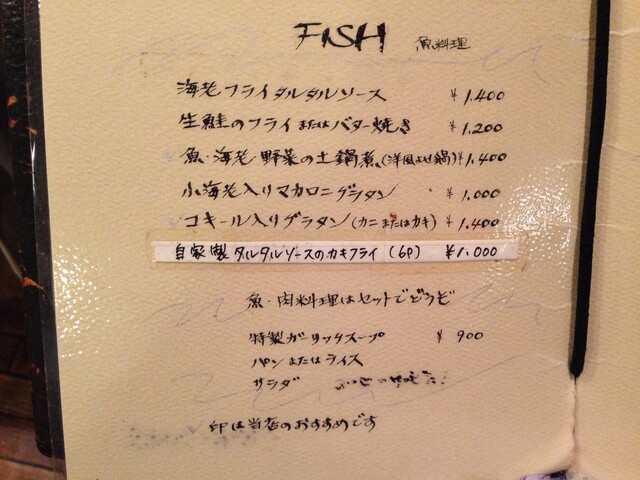 FISH 魚料理
海老フライタルタルソース ¥1.400
生鮭のフライまたはバター焼き ¥1.200
魚・海老・野菜の土鍋煮(洋風よせ鍋) ¥1.400
小海老入りマカロニグラタン ¥1.000
コキール入りグラタン(カニまたはカキ) ¥1.400
自家製タルタルソースのカキフライ(6P) ¥1.000
魚・肉料理はセットでどうぞ
特製ガーリックスープ ¥900
パンまたはライス
サラダ
印は当店のおすすめです